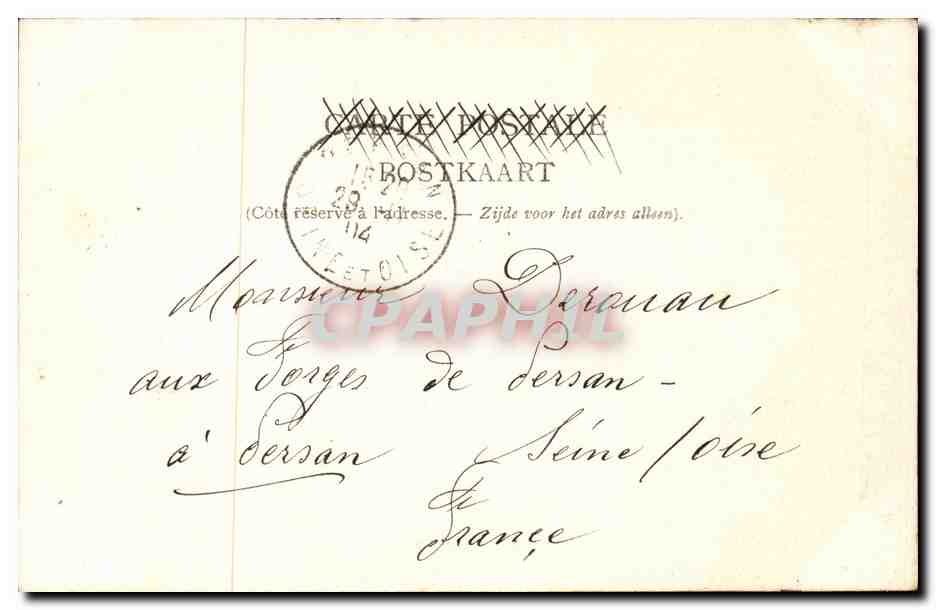 CARTE POSTALE
POSTKAART
(Côté réservé à l'adresse. — Zijde voor het adres alleen).
29
04
ET OISE
CPAPHIL
Monsieur Derouau
aux Forges de Persan -
à Persan Seine / oise
France